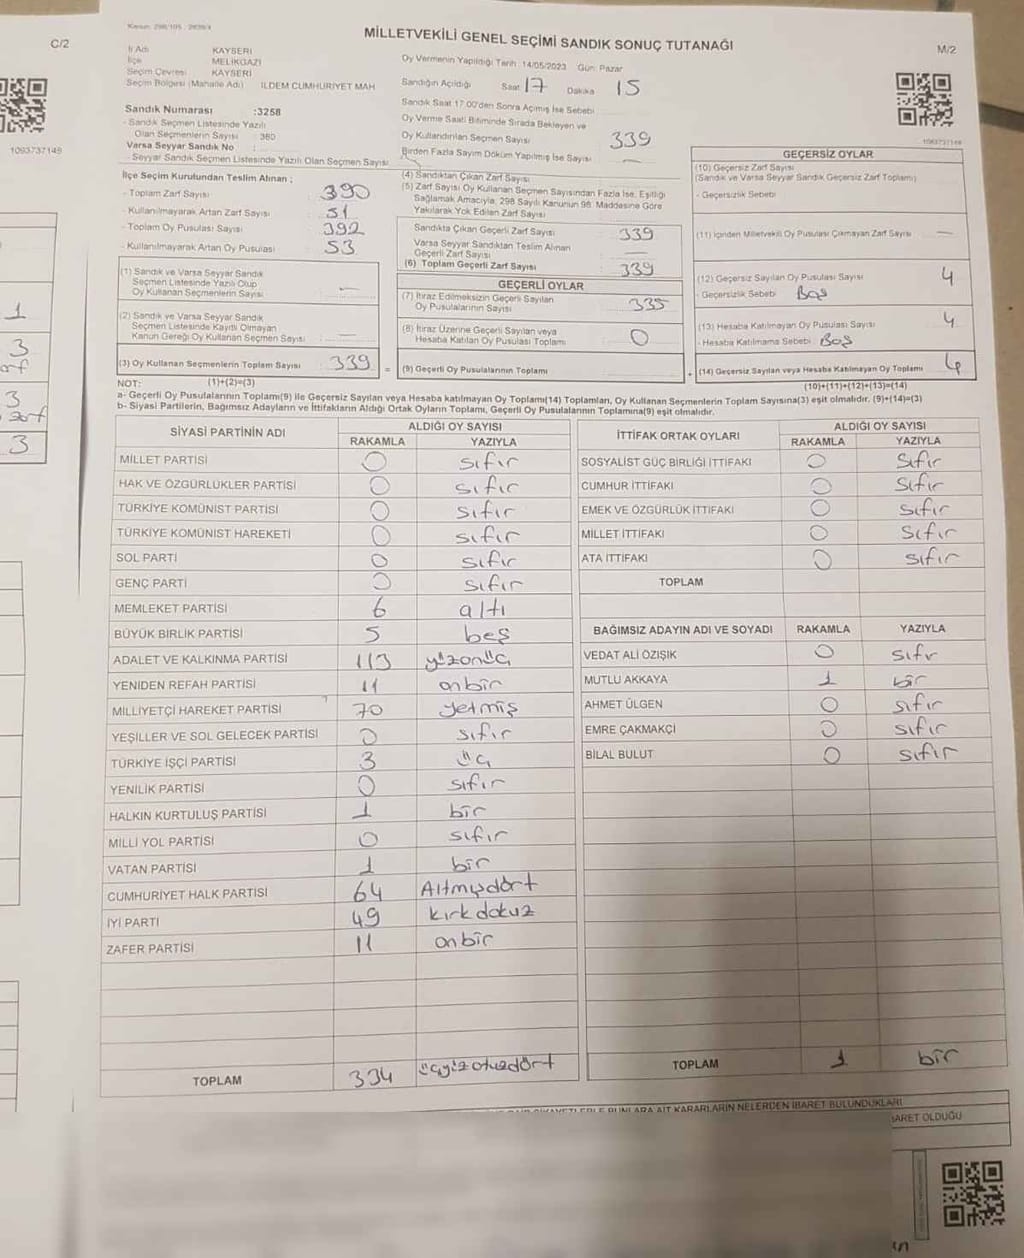 C/2
1093737149
MİLLETVEKİLİ GENEL SEÇİMİ SANDIK SONUÇ TUTANAĞI
M/2
İl Adı KAYSERİ
İlçe MELİKGAZİ
Seçim Çevresi KAYSERİ
Seçim Bölgesi (Mahalle Adı) ILDEM CUMHURİYET MAH
Oy Vermenin Yapıldığı Tarih :14/05/2023 Gün: Pazar
Sandığın Açıldığı Saat 17 Dakika 15
Sandık Saat 17.00'den Sonra Açılmış İse Sebebi
Oy Verme Saati Bitiminde Sırada Bekleyen ve
Oy Kullandırılan Seçmen Sayısı 339
Birden Fazla Sayım Döküm Yapılmış İse Sayısı —
Sandık Numarası :3258
- Sandık Seçmen Listesinde Yazılı
Olan Seçmenlerin Sayısı : 380
Varsa Seyyar Sandık No :
- Seyyar Sandık Seçmen Listesinde Yazılı Olan Seçmen Sayısı
İlçe Seçim Kurulundan Teslim Alınan ;
- Toplam Zarf Sayısı : 390
- Kullanılmayarak Artan Zarf Sayısı : 51
- Toplam Oy Pusulası Sayısı : 392
- Kullanılmayarak Artan Oy Pusulası : 53
(1) Sandık ve Varsa Seyyar Sandık
Seçmen Listesinde Yazılı Olup
Oy Kullanan Seçmenlerin Sayısı —
(2) Sandık ve Varsa Seyyar Sandık
Seçmen Listesinde Kayıtlı Olmayan
Kanun Gereği Oy Kullanan Seçmen Sayısı —
(3) Oy Kullanan Seçmenlerin Toplam Sayısı 339
(4) Sandıktan Çıkan Zarf Sayısı
(5) Zarf Sayısı Oy Kullanan Seçmen Sayısından Fazla İse, Eşitliği
Sağlamak Amacıyla, 298 Sayılı Kanunun 98. Maddesine Göre
Yakılarak Yok Edilen Zarf Sayısı
Sandıkta Çıkan Geçerli Zarf Sayısı 339
Varsa Seyyar Sandıktan Teslim Alınan
Geçerli Zarf Sayısı —
(6) Toplam Geçerli Zarf Sayısı 339
GEÇERLİ OYLAR
(7) İtiraz Edilmeksizin Geçerli Sayılan
Oy Pusulalarının Sayısı 335
(8) İtiraz Üzerine Geçerli Sayılan veya
Hesaba Katılan Oy Pusulası Toplamı 0
(9) Geçerli Oy Pusulalarının Toplamı
1093737149
GEÇERSİZ OYLAR
(10) Geçersiz Zarf Sayısı
(Sandık ve Varsa Seyyar Sandık Geçersiz Zarf Toplamı)
- Geçersizlik Sebebi
(11) İçinden Milletvekili Oy Pusulası Çıkmayan Zarf Sayısı —
(12) Geçersiz Sayılan Oy Pusulası Sayısı 4
- Geçersizlik Sebebi Boş
(13) Hesaba Katılmayan Oy Pusulası Sayısı 4
- Hesaba Katılmama Sebebi : Boş
(14) Geçersiz Sayılan veya Hesaba Katılmayan Oy Toplamı 4
NOT: (1)+(2)=(3) (10)+(11)+(12)+(13)=(14)
a- Geçerli Oy Pusulalarının Toplamı(9) ile Geçersiz Sayılan veya Hesaba katılmayan Oy Toplamı(14) Toplamları, Oy Kullanan Seçmenlerin Toplam Sayısına(3) eşit olmalıdır. (9)+(14)=(3)
b- Siyasi Partilerin, Bağımsız Adayların ve İttifakların Aldığı Ortak Oyların Toplamı, Geçerli Oy Pusulalarının Toplamına(9) eşit olmalıdır.
SİYASİ PARTİNİN ADI ALDIĞI OY SAYISI
RAKAMLA YAZIYLA
MİLLET PARTİSİ 0 sıfır
HAK VE ÖZGÜRLÜKLER PARTİSİ 0 sıfır
TÜRKİYE KOMÜNİST PARTİSİ 0 sıfır
TÜRKİYE KOMÜNİST HAREKETİ 0 sıfır
SOL PARTİ 0 sıfır
GENÇ PARTİ 0 sıfır
MEMLEKET PARTİSİ 6 altı
BÜYÜK BİRLİK PARTİSİ 5 beş
ADALET VE KALKINMA PARTİSİ 113 yüzonüç
YENİDEN REFAH PARTİSİ 11 onbir
MİLLİYETÇİ HAREKET PARTİSİ 70 yetmiş
YEŞİLLER VE SOL GELECEK PARTİSİ 0 sıfır
TÜRKİYE İŞÇİ PARTİSİ 3 üç
YENİLİK PARTİSİ 0 sıfır
HALKIN KURTULUŞ PARTİSİ 1 bir
MİLLİ YOL PARTİSİ 0 sıfır
VATAN PARTİSİ 1 bir
CUMHURİYET HALK PARTİSİ 64 Altmışdört
İYİ PARTİ 49 kırkdokuz
ZAFER PARTİSİ 11 onbir
TOPLAM 334 üçyüzotuzdört
İTTİFAK ORTAK OYLARI ALDIĞI OY SAYISI
RAKAMLA YAZIYLA
SOSYALİST GÜÇ BİRLİĞİ İTTİFAKI 0 sıfır
CUMHUR İTTİFAKI 0 sıfır
EMEK VE ÖZGÜRLÜK İTTİFAKI 0 sıfır
MİLLET İTTİFAKI 0 sıfır
ATA İTTİFAKI 0 sıfır
TOPLAM
BAĞIMSIZ ADAYIN ADI VE SOYADI RAKAMLA YAZIYLA
VEDAT ALİ ÖZIŞIK 0 sıfr
MUTLU AKKAYA 1 bir
AHMET ÜLGEN 0 sıfır
EMRE ÇAKMAKÇİ 0 sıfır
BİLAL BULUT 0 sıfır
TOPLAM 1 bir
BUNLARA AİT KARARLARIN NELERDEN İBARET BULUNDUKLARI
BARET OLDUĞU
1
3
3
3